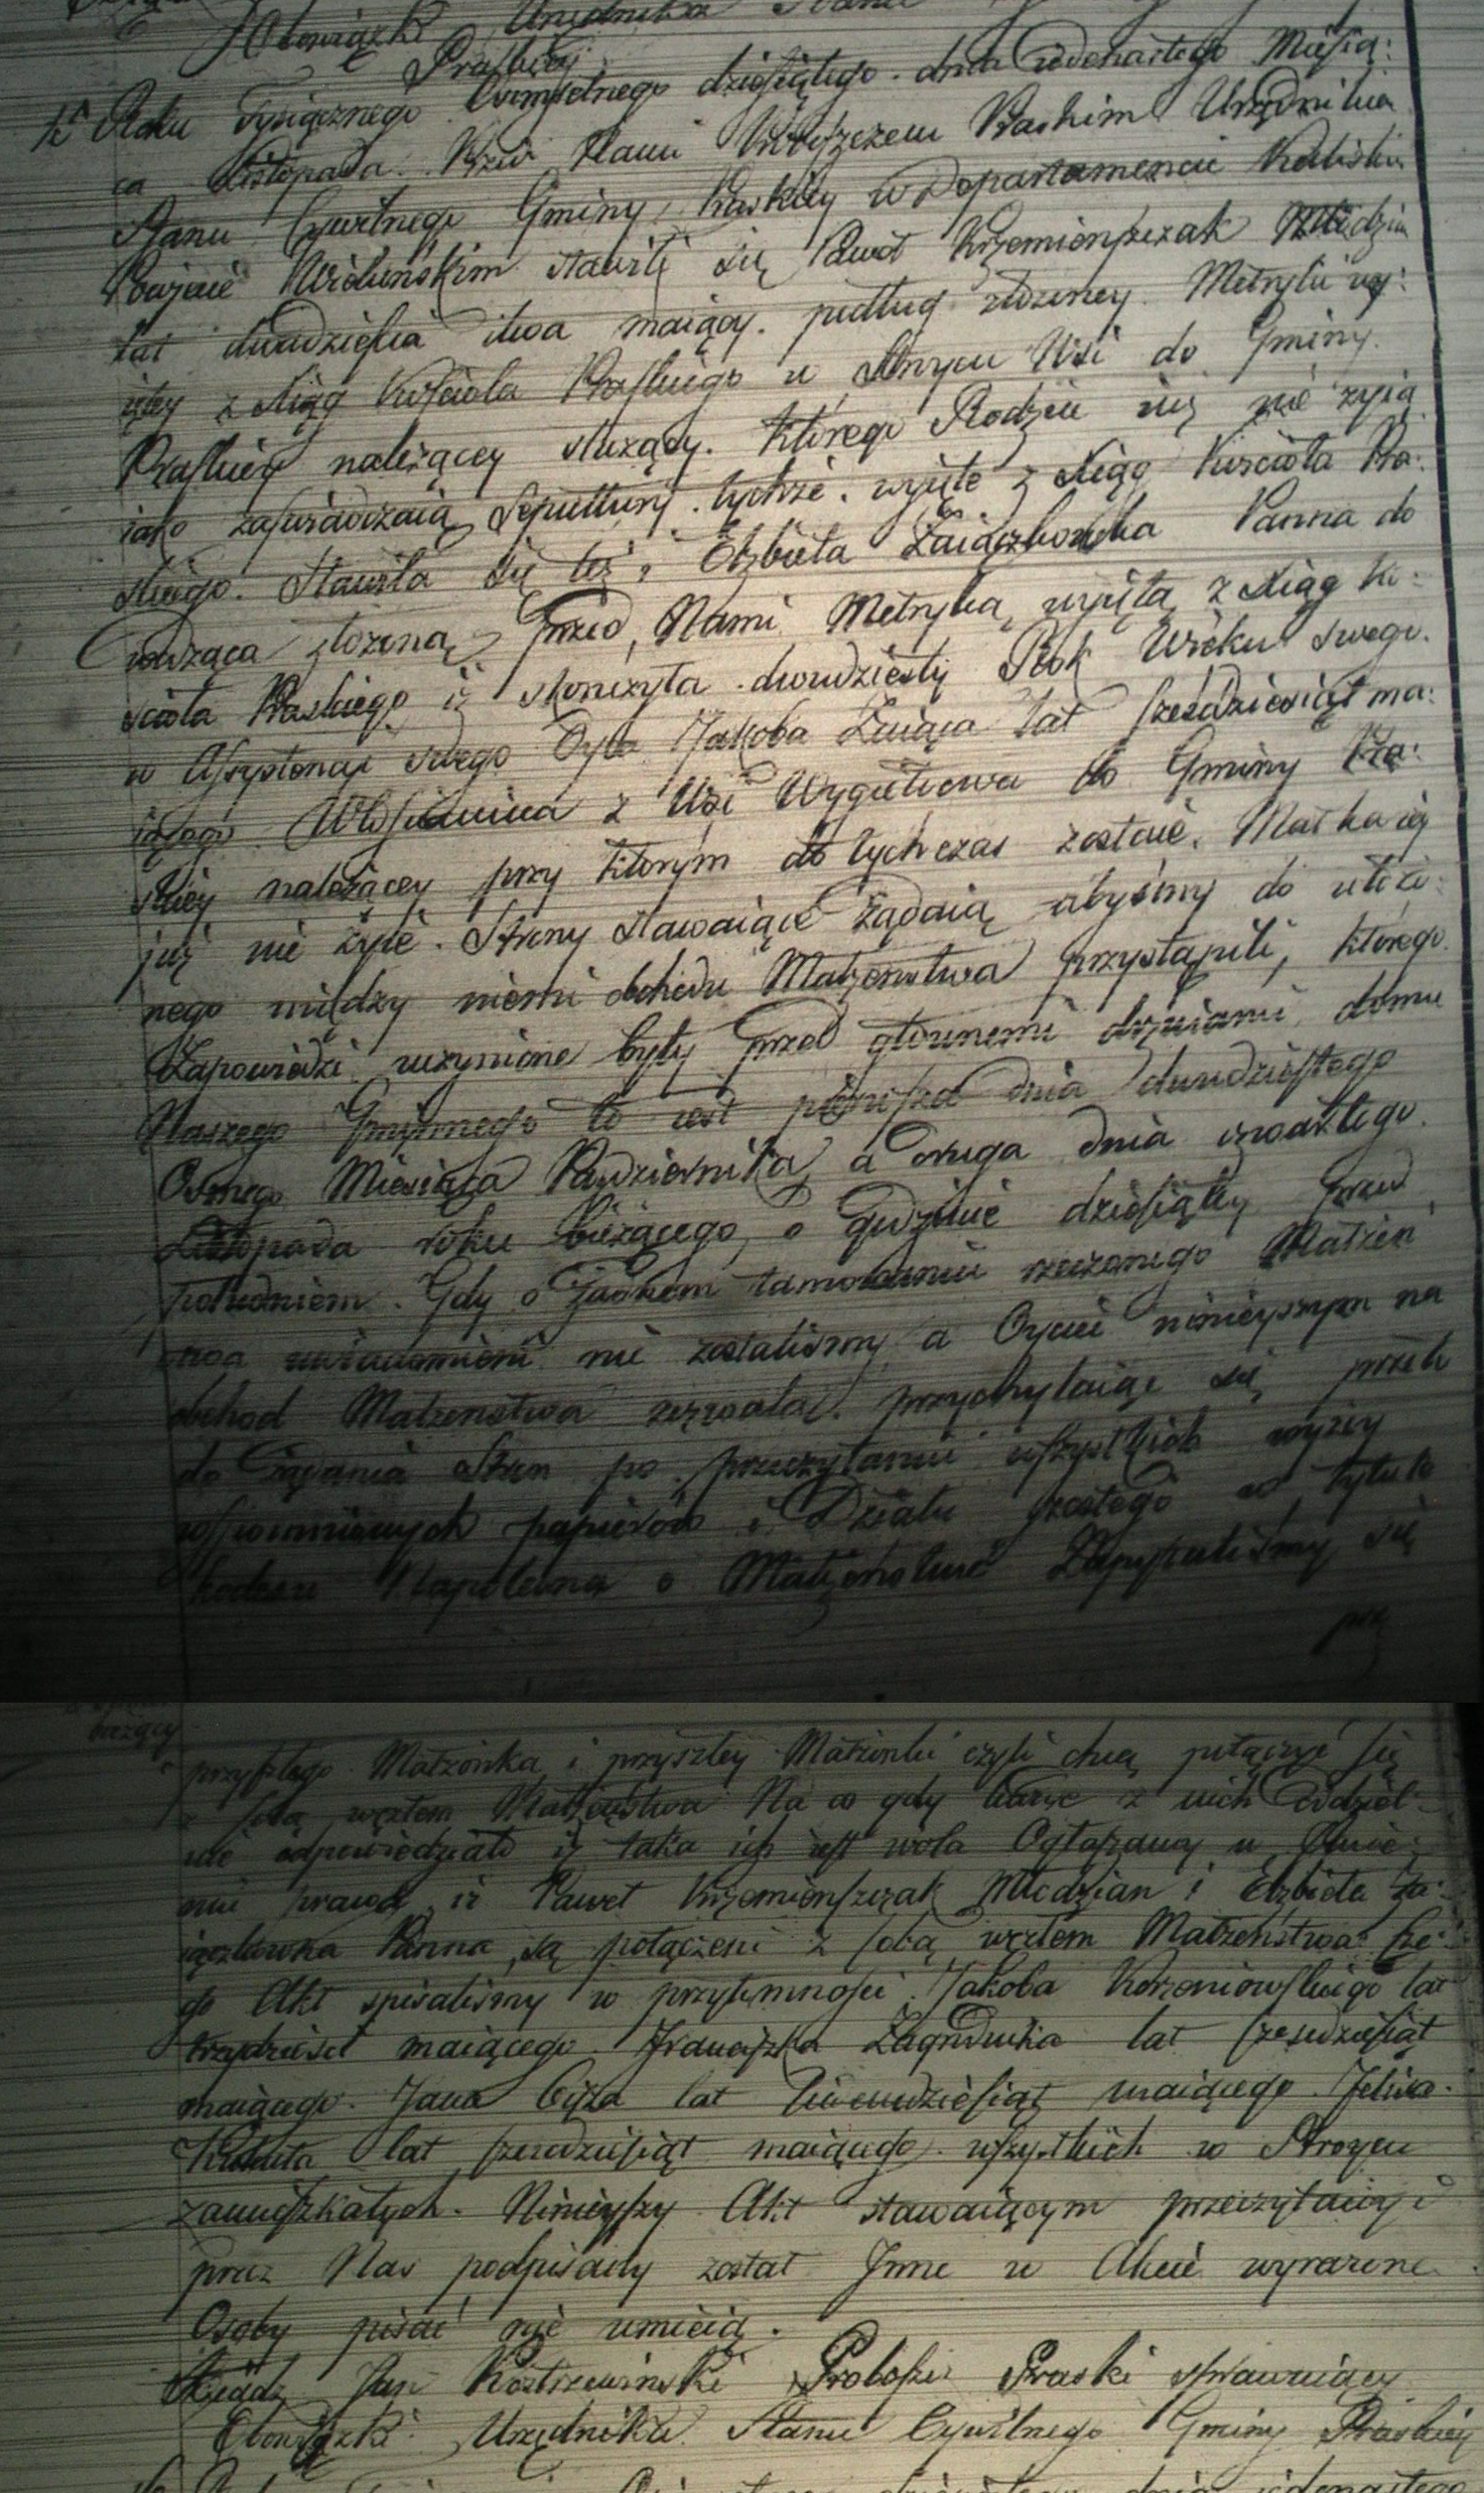 Obowiązki Urzędnika Stanu
Praskiey
Roku Tysiącznego Osmsetnego dziesiątego dnia Miesią:
ca Listopada. Przed Nami Proboszczem Praskim Urzędnika
Stanu Cywilnego Gminy Praskiey w Departamencie Kaliskim
Powiecie Wieluńskim stawili się Paweł Krzemienszczak Młodzian
lat dwadzieścia dwa maiący. podług złożoney Metryki wy:
iętey z Xiąg Kościoła Praskiego w Stroycu Wsi do Gminy
Praskiey należącey służący. którego Rodzice iuż nie żyią
iako zaświadczaią Sepultury tychże. wyięte z Xiąg Kościoła Pra:
skiego. Stawiła się też i Elżbieta Zaiączkowska Panna do
wodząca złożoną przed Nami Metryką wyiętą z Xiąg Ko:
ścioła Praskiego iż skończyła dwudziesty Rok Wieku swego.
w Assystencyi swego Oyca Jakoba Zaiąca lat sześćdziesiąt ma:
iącego Włościanina z Wsi Wygiełdowa do Gminy Pra:
skiey należącey przy którym do tych czas zostaie. Matka iey
już nie żyie. Strony stawaiące żądaią abyśmy do ułożo:
nego między niemi obchodu Małżeństwa przystąpili, którego
Zapowiedzi uczynione były przed głównemi drzwiami domu
Naszego Gminnego to iest pierwsza dnia dwudziestego
Osmego Miesiąca Października, a druga dnia czwartego
Listopada roku bieżącego, o godzinie dziesiątey przed
południem. Gdy o żadnem tamowaniu rzeczonego Małżeń
stwa uwiadomieni nie zostaliśmy a Oyciec ninieyszym na
obchod Małżeństwa zezwala. przychylaiąc się przeto
do Żądania Stron po przeczytaniu wszystkich wyżey
wspomnionych papierów i Działu szóstego w tytule
kodexu Napoleona o Małżeństwie Zapytaliśmy się
przyszłego Małżonka i przyszłey Małżonki czyli chcą połączyć się
z sobą węzłem Małżeństwa Na co gdy każde z nich oddziel-
nie odpowiedziało iż taka ich iest wola Ogłaszamy w Imie-
niu prawa, iż Paweł Krzemienszczak Młodzian i Elżbieta Za-
iączkowska Panna są połączeni z sobą węzłem Małżeństwa. Cze-
go Akt spisaliśmy w przytomności Jakoba Korzeniowskiego lat
trzydzieści maiącego. Franciszka Zagrodnika lat sześćdziesiąt
maiącego. Jana lat maiącego.
lat maiącego. wszystkich w Stroycu
zamieszkałych. Ninieyszy Akt stawaiącym przeczytany i
przez Nas podpisany został Inne w Akcie wyrażone
Osoby pisać nie umieią.
Xiądz Jan Proboszcz Praski sprawuiący
Obowiązki Urzędnika Stanu Cywilnego Gminy Praskiey